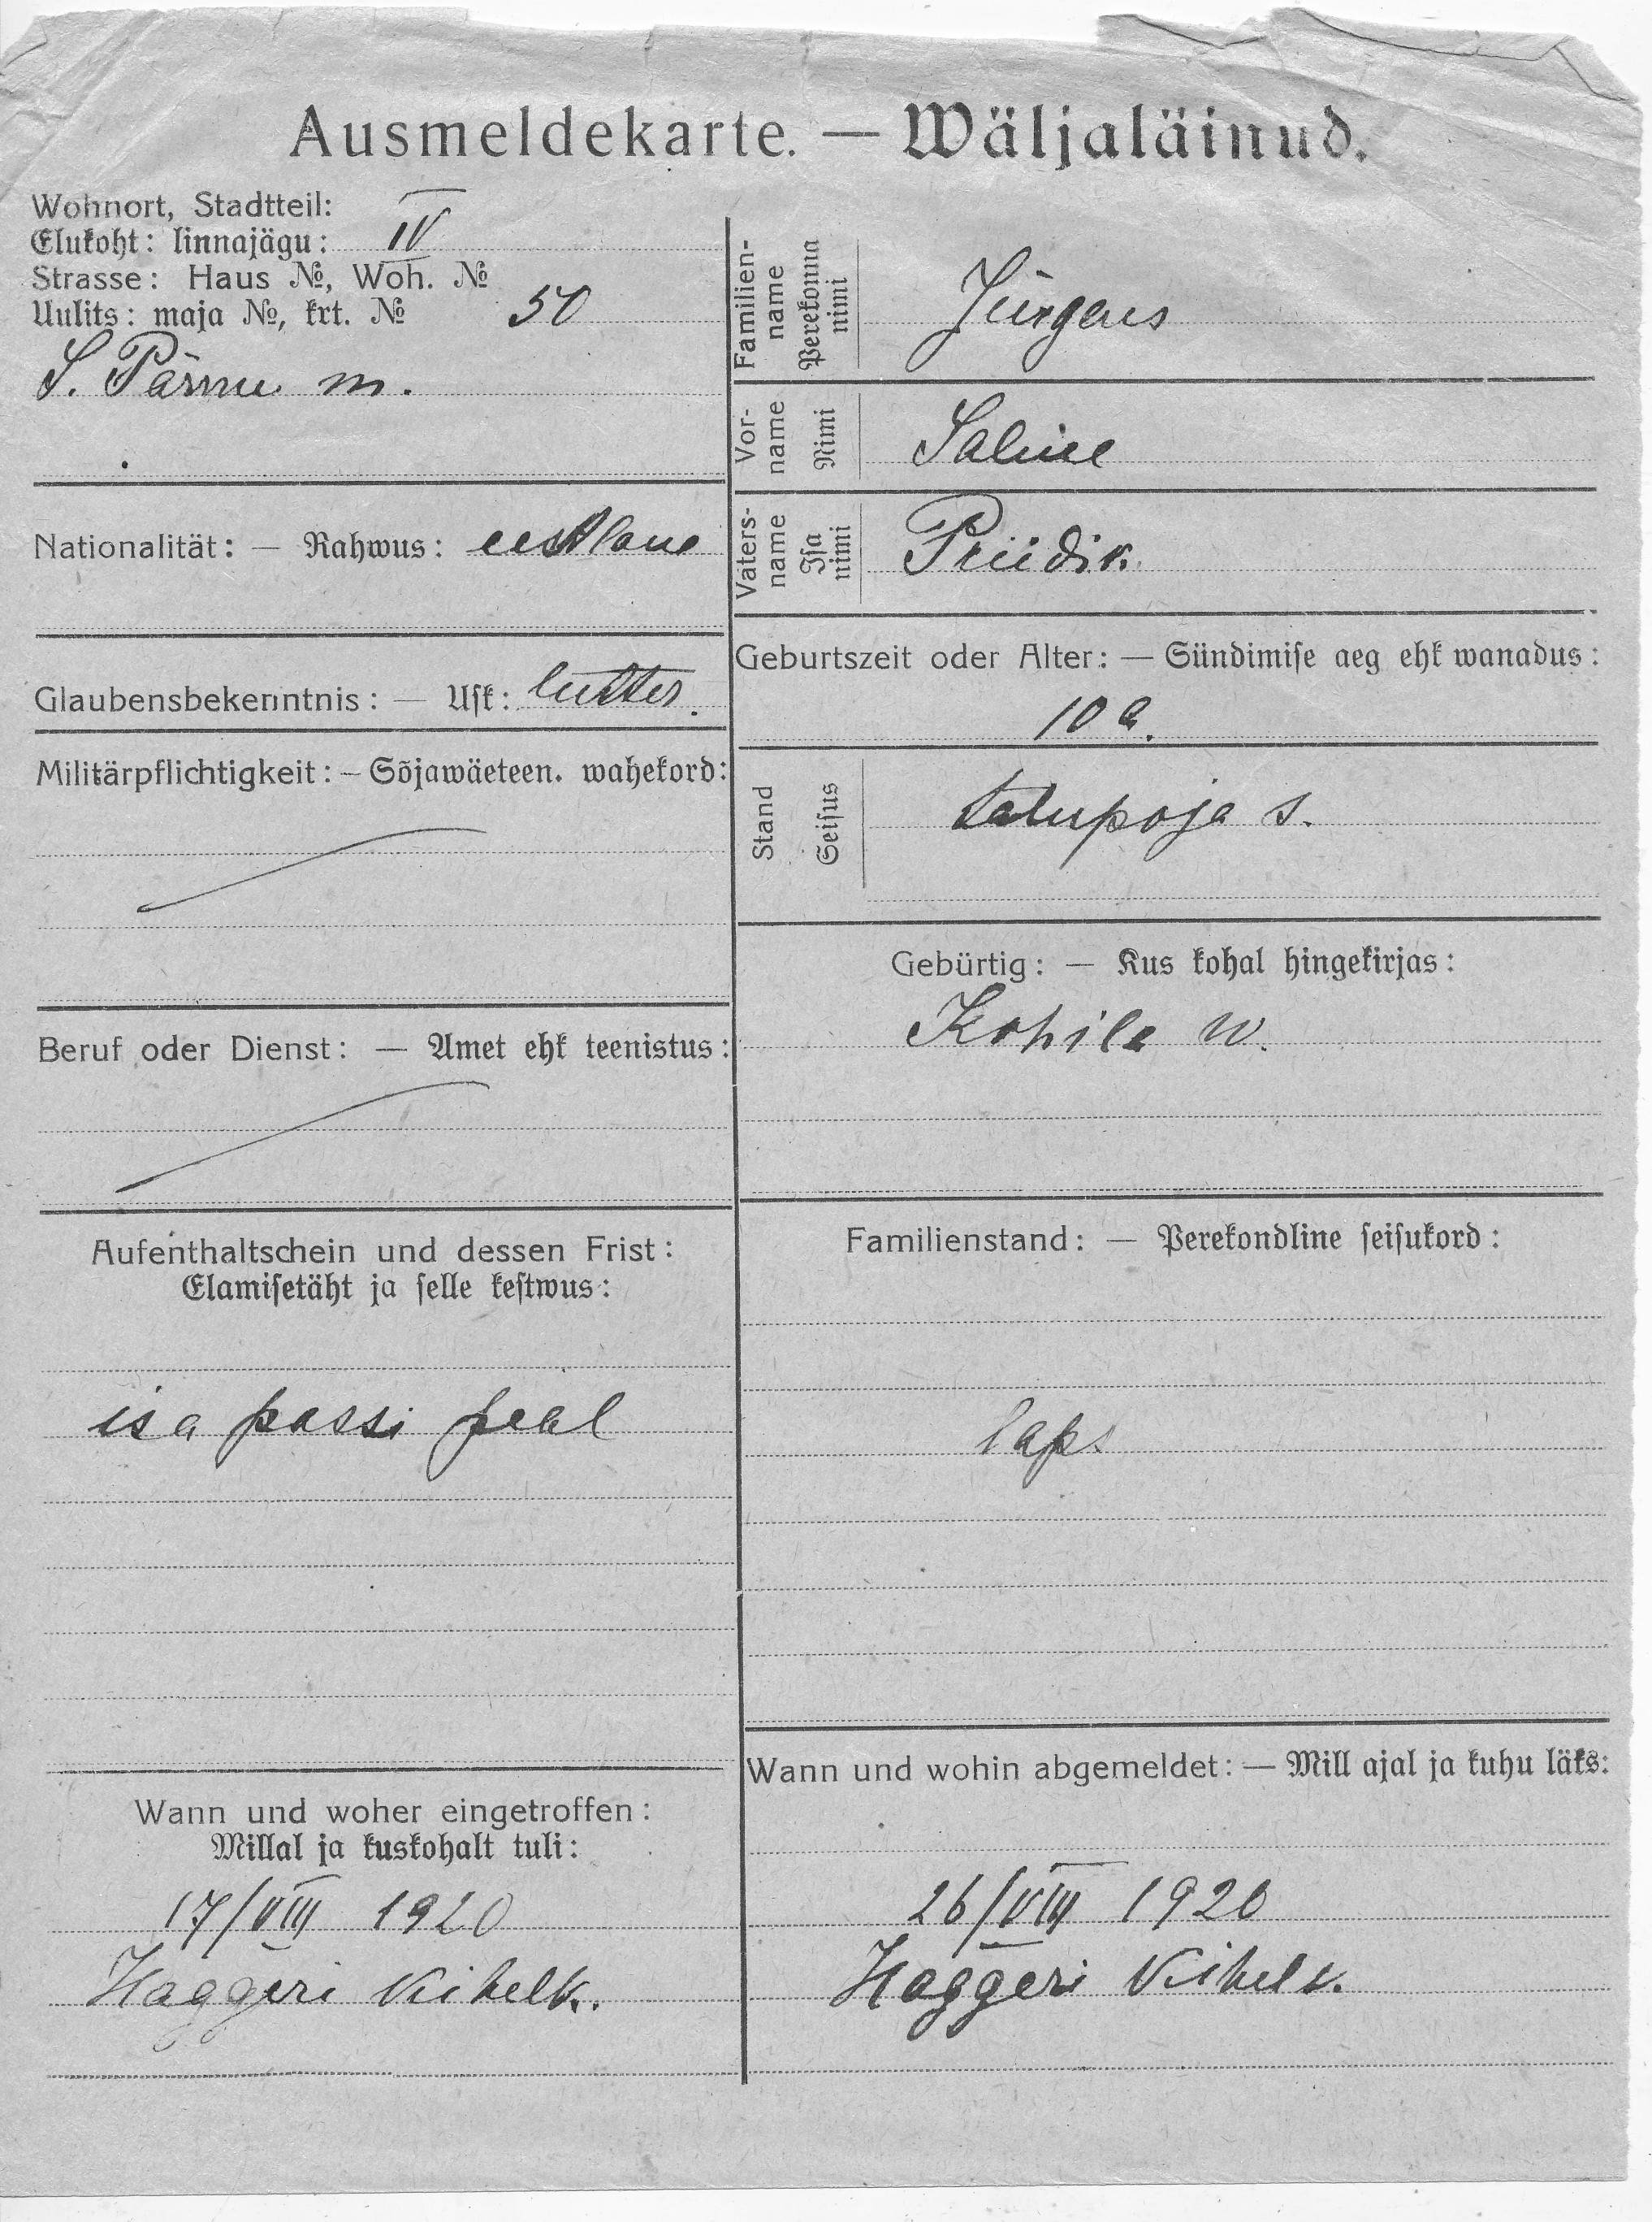 Ausmeldekarte. — Wäljaläinud.
Wohnort, Stadtteil:
Elukoht: linnajägu: IV
Strasse: Haus №, Woh. №
Uulits: maja №, krt. № 50
S. Pärnu m.
Nationalität: — Rahwus: eestlane
Glaubensbekenntnis: — Usk: lutter.
Militärpflichtigkeit: — Sõjawäeteen. wahekord:
Beruf oder Dienst: — Amet ehk teenistus:
Aufenthaltschein und dessen Frist:
Elamisetäht ja selle kestwus:
isa passi peal
Wann und woher eingetroffen:
Millal ja kuskohalt tuli:
17/VIII 1920
Haggeri Kihelk.
Familien-
name
Perekonna
nimi
Jürgens
Vor-
name
Nimi
Saline
Vaters-
name
Isa
nimi
Priidik
Geburtszeit oder Alter: — Sündimise aeg ehk wanadus:
10 a.
Stand
Seisus
talupoja s.
Gebürtig: — Kus kohal hingekirjas:
Kohila w.
Familienstand: — Perekondline seisukord:
laps
Wann und wohin abgemeldet: — Mill ajal ja kuhu läks:
26/VIII 1920
Haggeri Kihelk.